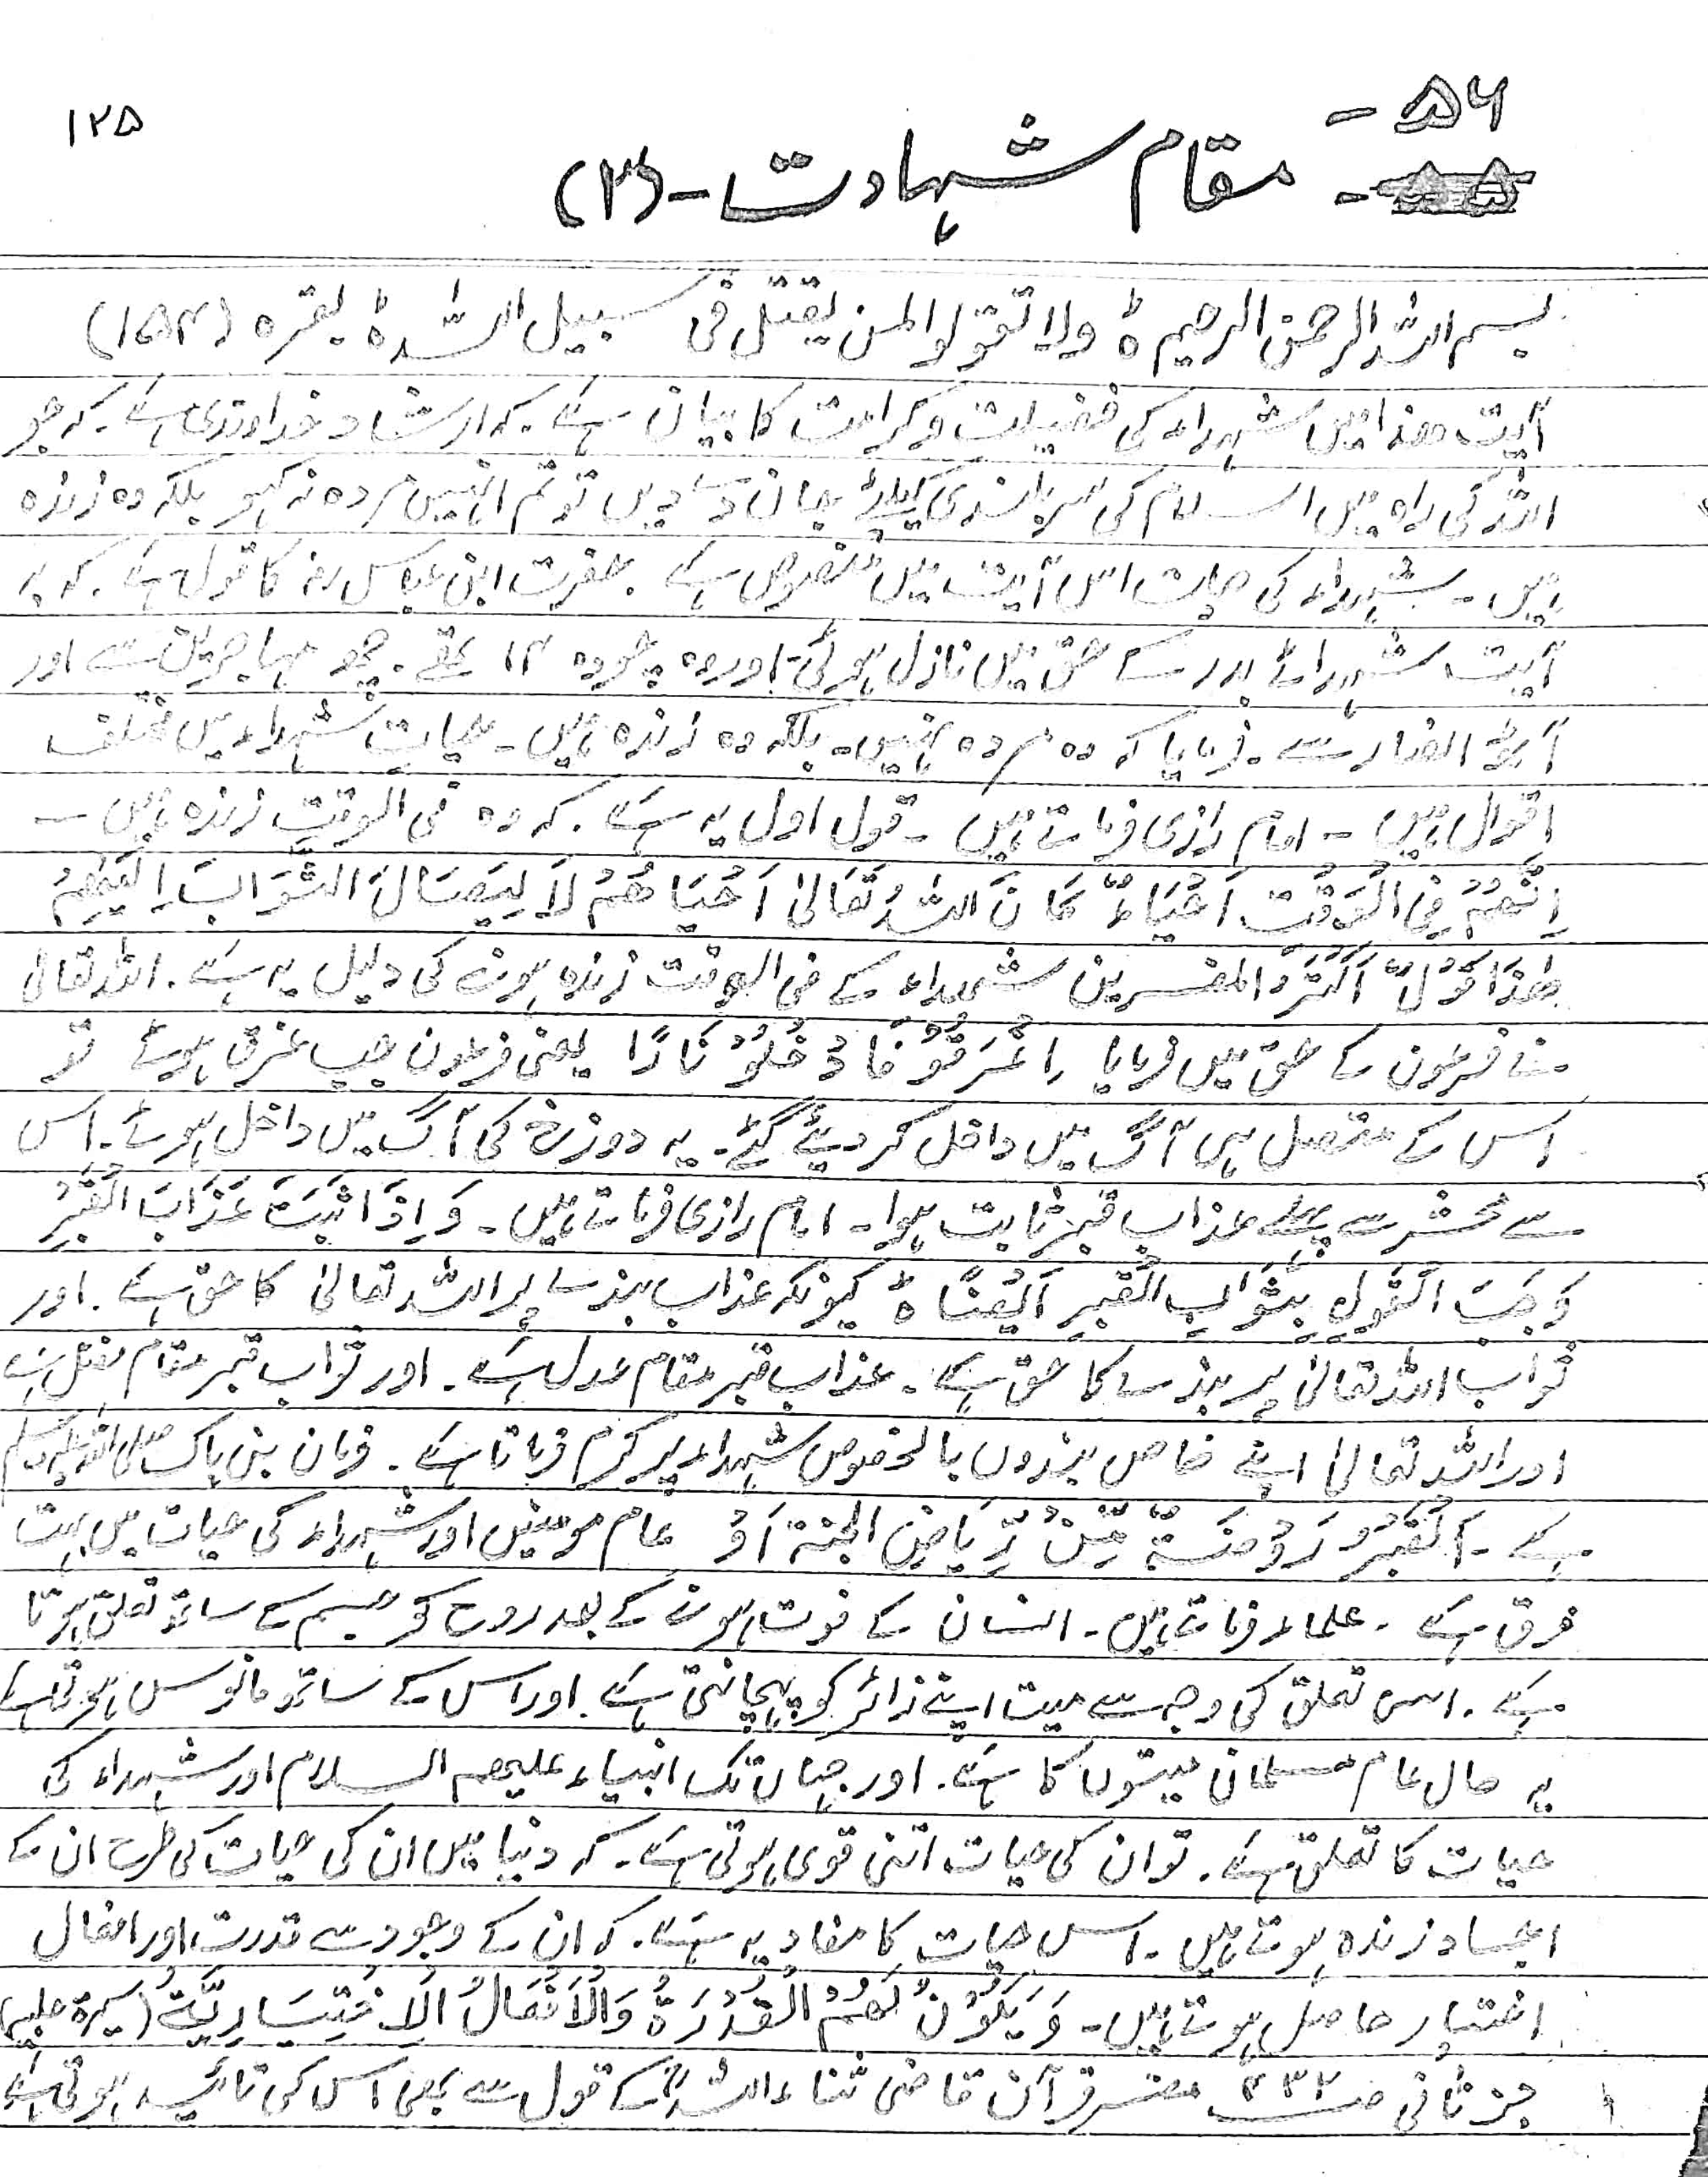 ۱۲۵
۵۶ -
مقام شہادت - (۳)
بسم اللہ الرحمن الرحیم ہ ولا تقولوا لمن یقتل فی سبیل اللہ ہ بقرہ (۱۵۴)
آیت ھذا میں شہداء کی فضیلت و کرامت کا بیان ہے۔ کہ ارشاد خداوندی ہے۔ کہ جو
اللہ کی راہ میں اسلام کی سربلندی کیلئے جان دے دیں تو تم انہیں مردہ نہ کہو بلکہ وہ زندہ
ہیں۔ شہداء کی حیات اس آیت میں منصوص ہے۔ حضرت ابن عباس رضہ کا قول ہے۔ کہ یہ
آیت شہدائے بدر کے حق میں نازل ہوئی۔ اور وہ چودہ ۱۴ تھے۔ چھ مہاجرین سے اور
آٹھ انصار سے۔ فرمایا کہ وہ مردہ نہیں۔ بلکہ وہ زندہ ہیں۔ حیات شہداء میں مختلف
اقوال ہیں۔ امام رازی فرماتے ہیں۔ قول اول یہ ہے۔ کہ وہ فی الوقت زندہ ہیں۔
اِنَّھُمْ فِی الْوَقْت اَحْیَاءٌ کَانَّ اللہ تَعَالیٰ اَحْیَا ھُمْ لاَ یَصَالَ الثَّوَابَ اِلَیْھِمْ
ھٰذَا قَوْلٌ اَکْثَرُ المفسرین شہداء کے فی الوقت زندہ ہونے کی دلیل یہ ہے۔ اللہ تعالیٰ
نے فرعون کے حق میں فرمایا اُغْرَقُوْ فَاُدْخُلُوْ نَارًا یعنی فرعون جب غرق ہوئے تو
اس کے متصل ہی آگ میں داخل کر دیئے گئے۔ یہ دوزخ کی آگ میں داخل ہوئے۔ اس
سے محشر سے پہلے عذاب قبر ثابت ہوا۔ امام رازی فرماتے ہیں۔ وَ اِذَا ثَبَتَ عَذَابَ الْقَبْرِ
وَجَبَ الْقَولِ بِثَوَابِ الْقَبْرِ اَیْضًا ہ کیونکہ عذاب بندے پر اللہ تعالیٰ کا حق ہے۔ اور
ثواب اللہ تعالیٰ پر بندے کا حق ہے۔ عذاب قبر مقام عدل ہے۔ اور ثواب قبر مقام فضل ہے
اور اللہ تعالیٰ اپنے خاص بندوں بالخصوص شہداء پر کرم فرماتا ہے۔ فرمان نبی پاک صلی اللہ علیہ وسلم
ہے۔ اَلْقَبْرُ رَوْضَۃٌ مِّنْ رِّیَاضِ الجنۃ اَوْ عام مومنین اور شہداء کی حیات میں بہت
فرق ہے۔ علماء فرماتے ہیں۔ انسان کے فوت ہونے کے بعد روح کو جسم کے ساتھ تعلق ہوتا
ہے۔ اس تعلق کی وجہ سے میت اپنے زائر کو پہچانتی ہے۔ اور اس کے ساتھ مانوس ہوتی ہے
یہ حال عام مسلمان میتوں کا ہے۔ اور جہاں تک انبیاء علیھم السلام اور شہداء کی
حیات کا تعلق ہے۔ تو ان کی حیات اتنی قوی ہوتی ہے۔ کہ دنیا میں ان کی حیات کی طرح ان کے
اجساد زندہ ہوتے ہیں۔ اس حیات کا مفاد یہ ہے۔ کہ ان کے وجود سے قدرت اور افعال
اختیار حاصل ہوتے ہیں۔ وَیَکُوْنُ لَھُمُ الْقُدْرَۃُ وَالْاَفْعَالُ الْاِخْتِیَارِیَّۃُ (سیرۃ حلبیہ)
جز ثانی صـ ۴۳۲ مفسر قرآن قاضی ثناء اللہؒ کے قول سے بھی اس کی تائید ہوتی ہے